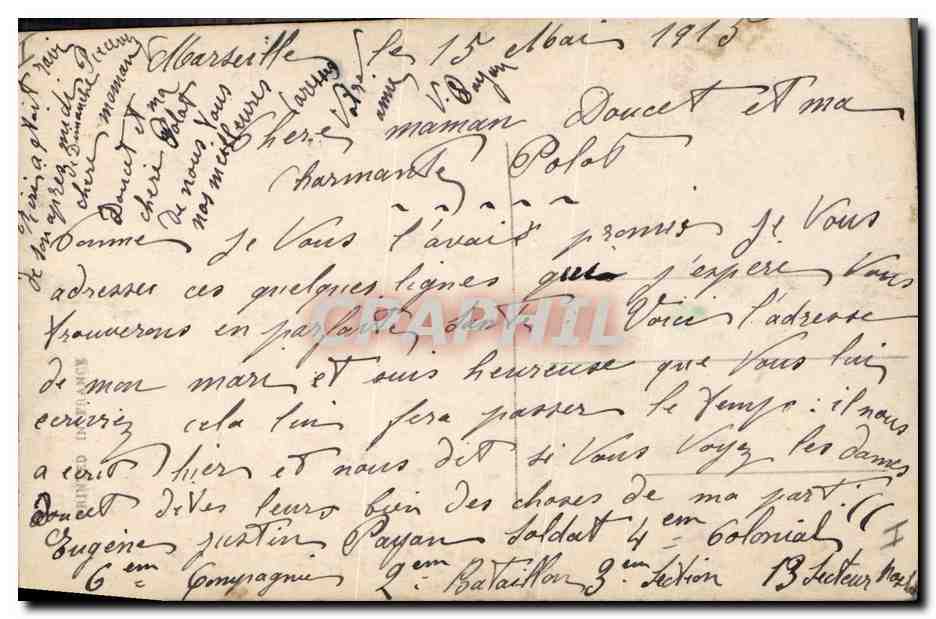 Marseille le 15 Mai 1915
Chere maman Doucet et ma
charmante Polot
Comme je Vous l'avais promis je Vous
adresser ces quelques lignes qui j'espere Vous
trouverons en parfaite santé. Voici l'adresse
de mon mari et suis heureuse que Vous lui
ecriviez cela lui fera passer le temps : il nous
a ecrit hier et nous dit si Vous Voyez les dames
Doucet dites leurs bien des choses de ma part :
Eugène justin Payan Soldat 4 em Colonial
6 em Compagnie 2 em Bataillon 3 em Section 13 Secteur
de son aprez midi
de Dimanche
chere maman
Doucet et
chere ma
Polot
de nous Vous
nos meilleures
Votre
amie
V. Payan
PRINTED IN FRANCE
CPAPHIL
I